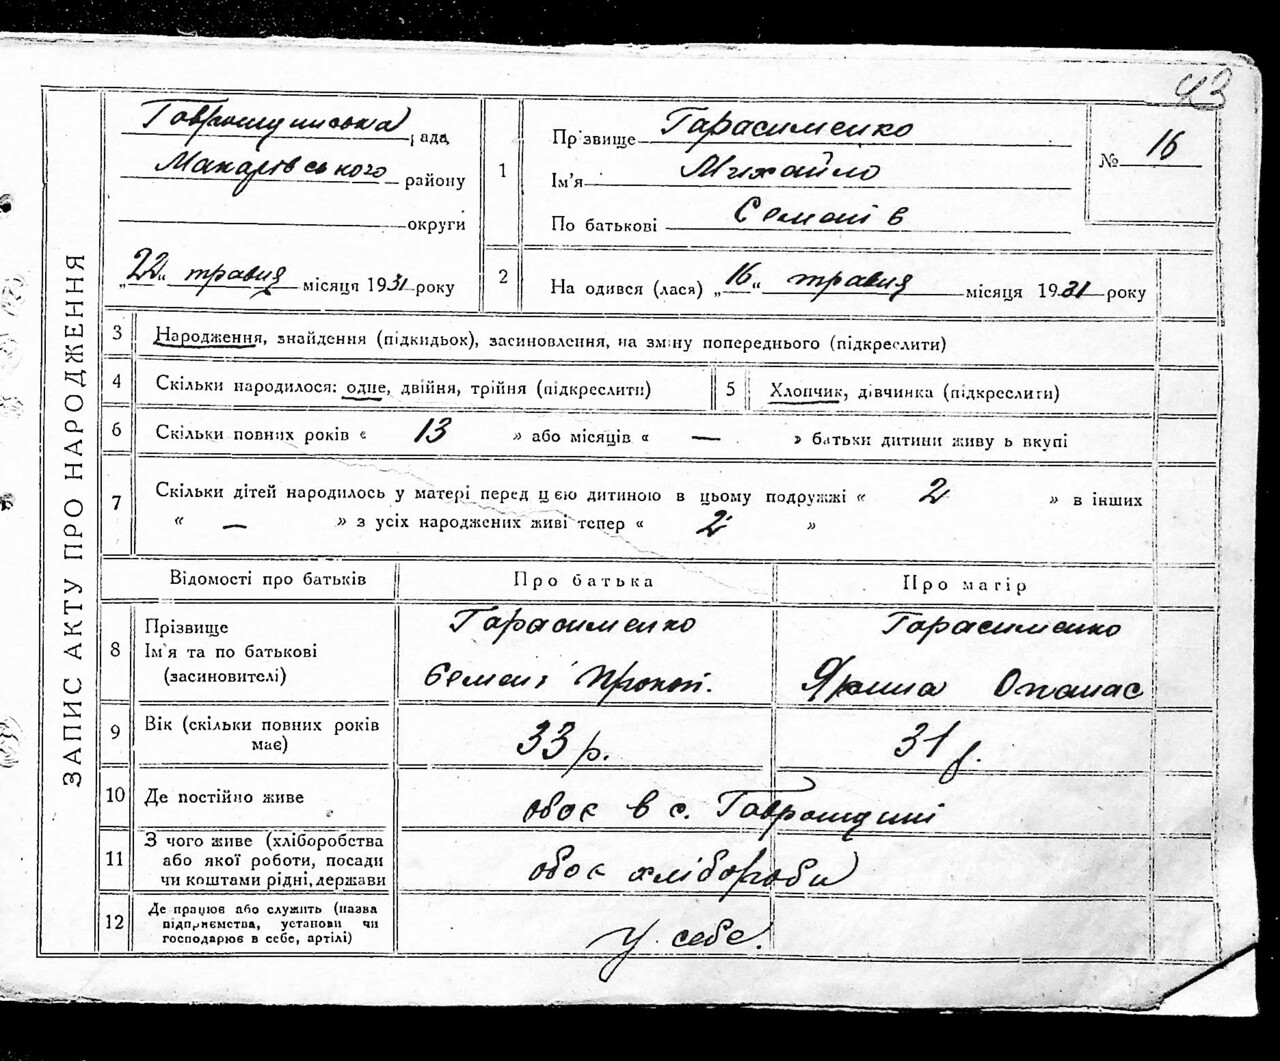 43
ЗАПИС АКТУ ПРО НАРОДЖЕННЯ
Гаврошинська рада
Макарівського району
округи
„22“ травня місяця 1931 року
1
Прізвище Гарасименко
Ім'я Михайло
По батькові Семенів
№ 16
2
На одився (лася) „16“ травня місяця 1931 року
3 Народження, знайдення (підкидьок), засиновлення, на зміну попереднього (підкреслити)
4 Скільки народилося: одне, двійня, трійня (підкреслити)
5 Хлопчик, дівчинка (підкреслити)
6 Скільки повних років « 13 » або місяців « — » батьки дитини живу ь вкупі
7 Скільки дітей народилось у матері перед цією дитиною в цьому подружжі « 2 » в інших
« — » з усіх народжених живі тепер « 2 »
Відомості про батьків Про батька Про матір
8 Прізвище
Ім'я та по батькові
(засиновителі)
Гарасименко
Семені Прокоп.
Гарасименко
Ярина Опанас
9 Вік (скільки повних років
має)
33 р.
31 р.
10 Де постійно живе обоє в с. Гаврошині
11 З чого живе (хліборобства
або якої роботи, посади
чи коштами рідні, держави
обоє хлібороби
12 Де працює або служить (назва
підприємства, установи чи
господарює в себе, артілі)
у себе.